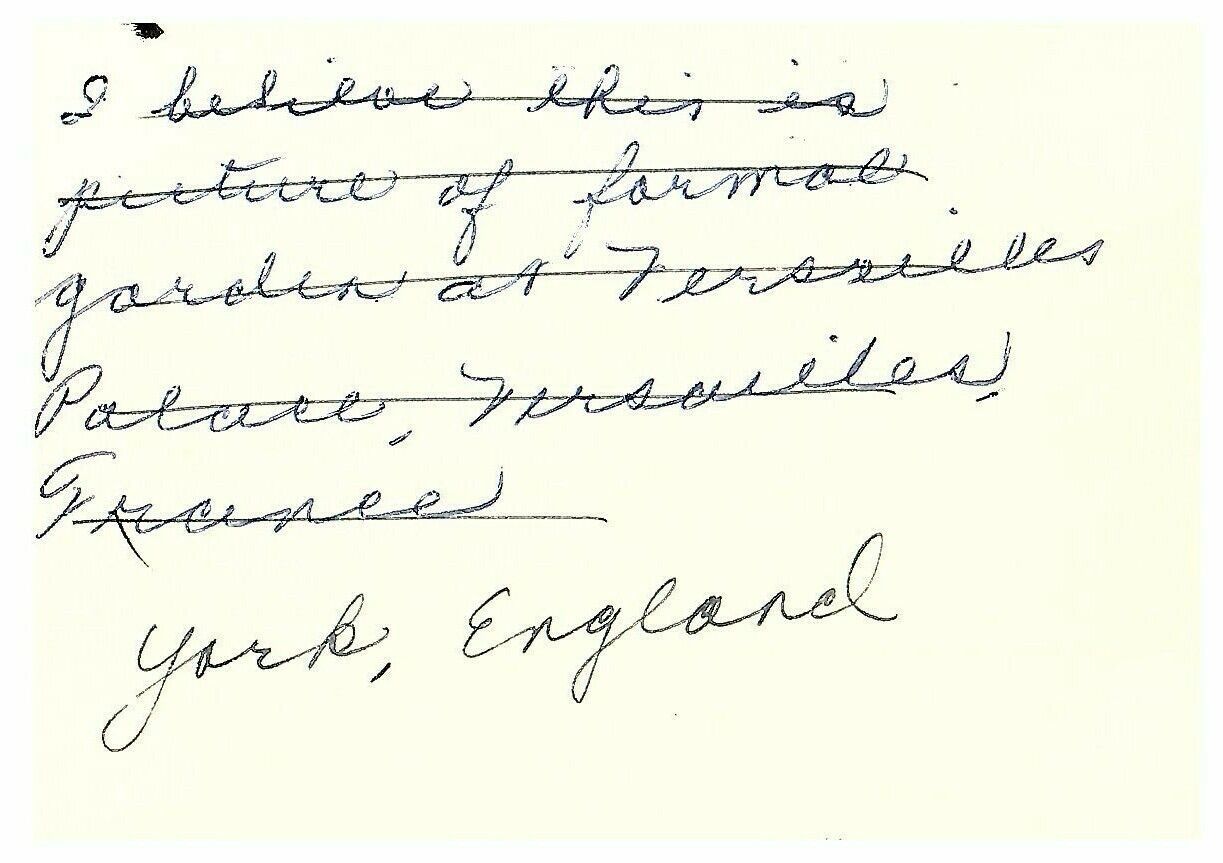 I believe this is
picture of formal
garden at Versailles
Palace, Versailles,
France
York, England